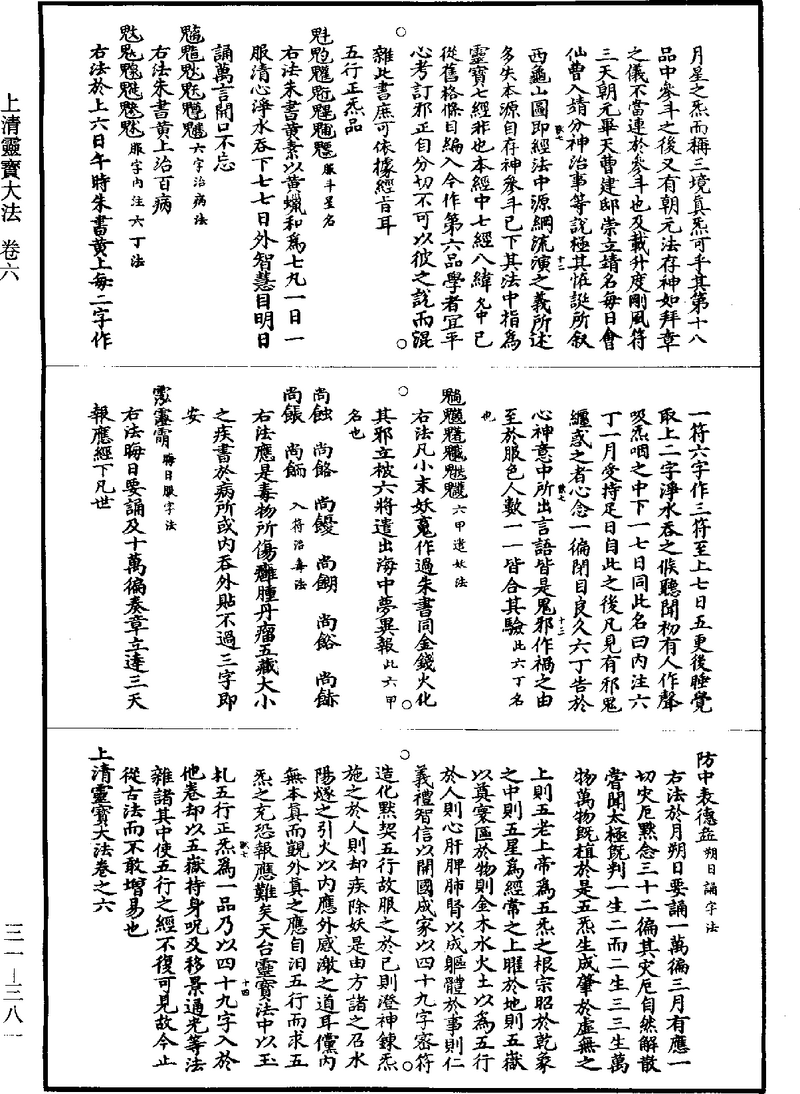 上清靈寶大法 卷六
三一—三八一
月星之炁而稱三境真炁可乎其第十八
品中參斗之後又有朝元法存神如拜章
之儀不當連於參斗也及載升度剛風符
三天朝元畢天曹建邸崇立靖名每日會
仙曹入靖分神治事等說極其恠誕所敘
西龜山圖即經法中源綱流演之義所述
多失本源自存神參斗已下其法中指為
靈寶七經非也本經中七經八緯先申已
從舊格條目編入今作第六品學者宜平
心考訂邪正自分切不可以彼之說而混
雜此書庶可依據經旨耳
五行正炁品
服斗星名
右法朱書黃素以黃蠟和為七丸一日一
服清心淨水吞下七七日外智慧目明日
誦萬言開口不忘
六字治病法
右法朱書黃上治百病
服字內注六丁法
右法於上六日午時朱書黃上每二字作
一符六字作三符至上七日五更後睡覺
取上二字淨水吞之候聽聞初有人作聲
吸炁咽之中下一七日同此名曰內注六
丁一月受持足日自此之後凡見有邪鬼
纏惑之者心念一徧閉目良久六丁告於
心神意中所出言語皆是鬼邪作禍之由
至於服色人數一一皆合其驗此六丁名
也
六甲遣妖法
右法凡小末妖鬼作過朱書同金錢火化
其邪立被六將遣出海中夢異報此六甲
名也
入符治毒法
右法應是毒物所傷癰腫丹瘤五藏大小
之疾書於病所或內吞外貼不過三字即
安
晦日服字法
右法晦日要誦及十萬徧奏章立達三天
報應經下凡世
防中表德益朔日誦字法
右法於月朔日要誦一萬徧三月有應一
切灾厄默念三十二徧其灾厄自然解散
嘗聞太極既判一生二而二生三三生萬
物萬物既植於是五炁生成肇於虛無之
上則五老上帝為五炁之根宗昭於乾象
之中則五星為經常之上曜於地則五嶽
以奠寰區於物則金木水火土以為五行
於人則心肝脾肺腎以成軀體於事則仁
義禮智信以開國成家以四十九字密符
造化默契五行故服之於己則澄神鍊炁
施之於人則却疾除妖是由方諸之召水
陽燧之引火以內應外感激之道耳儻內
無本真而覬外真之應自汨五行而求五
炁之充恐報應難矣天台靈寶法中以玉
札五行正炁為一品乃以四十九字入於
他卷却以五嶽持身呪及移景通光等法
雜諸其中使五行之經不復可見故今止
從古法而不敢增易也
上清靈寶大法卷之六